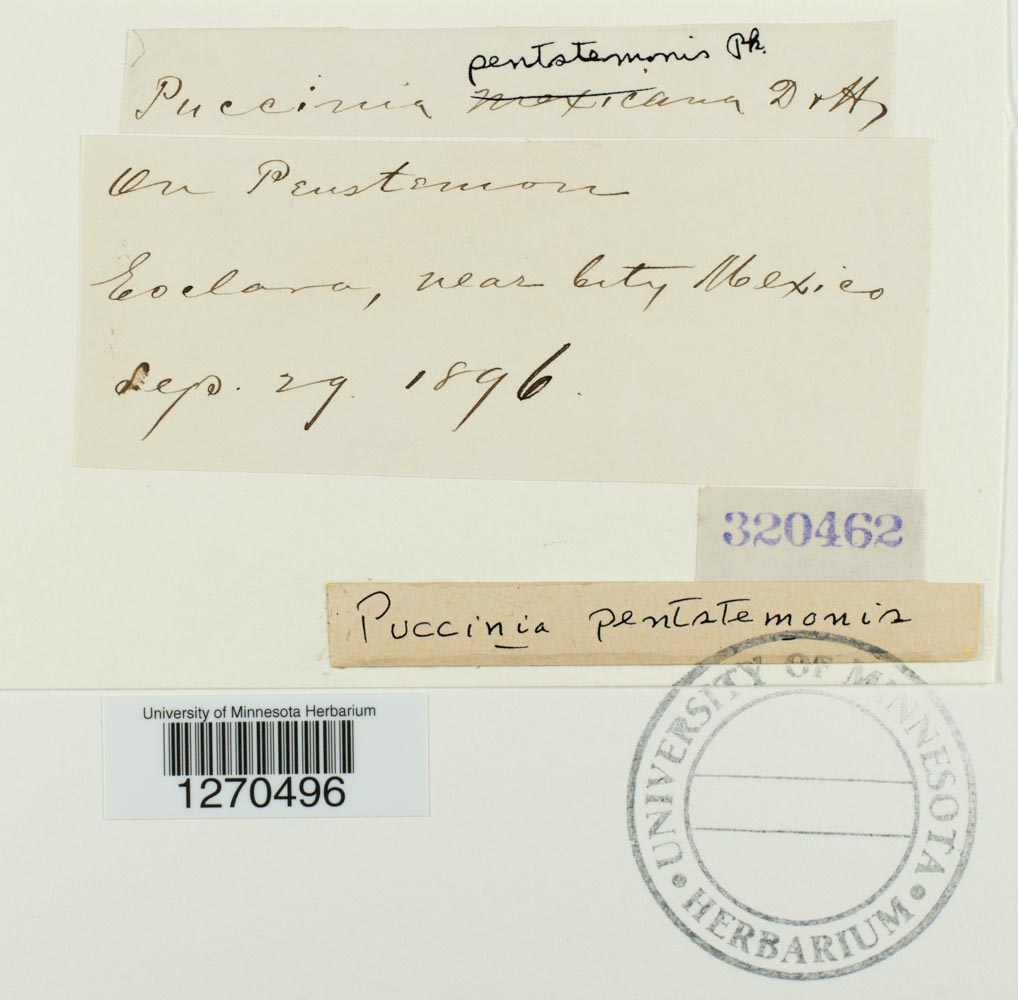 pentstemonis Pk.
Puccinia mexicana D & H
On Penstemon
Eoclara, near City Mexico
Sep. 29. 1896.
320462
Puccinia pentstemonis
University of Minnesota Herbarium
1270496
UNIVERSITY OF MINNESOTA
HERBARIUM